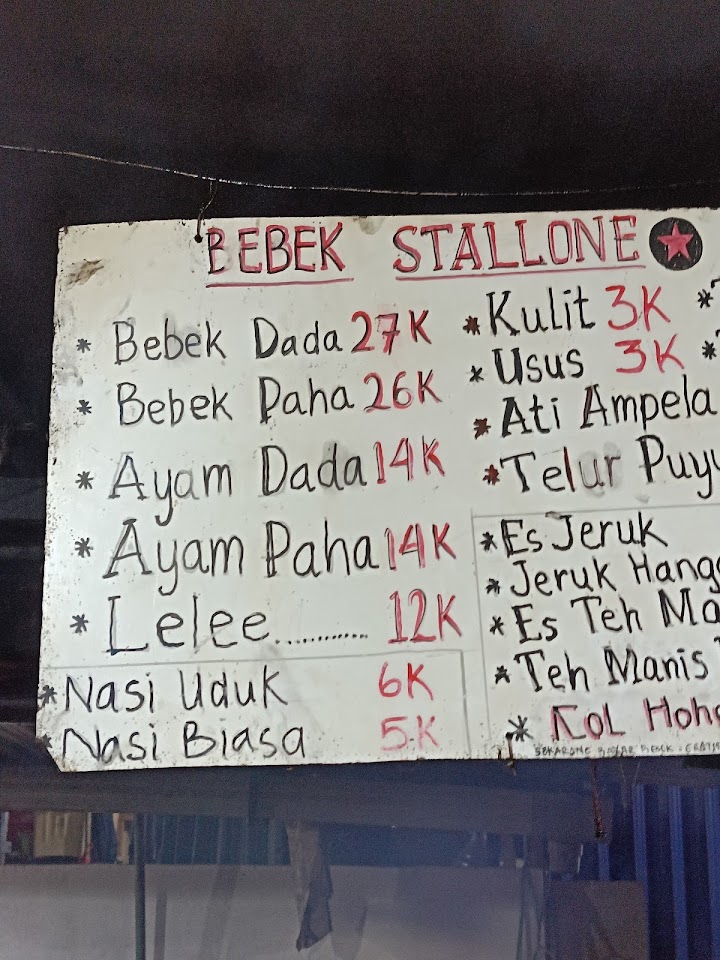 BEBEK STALLONE
* Bebek Dada 27K
* Bebek Paha 26K
* Ayam Dada 14K
* Ayam Paha 14K
* Lelee............ 12K
* Nasi Uduk 6K
* Nasi Biasa 5K
* Kulit 3K
* Usus 3K
* Ati Ampela
* Telur Puyu
* Es Jeruk
* Jeruk Hang
* Es Teh Ma
* Teh Manis
* Kol Hong